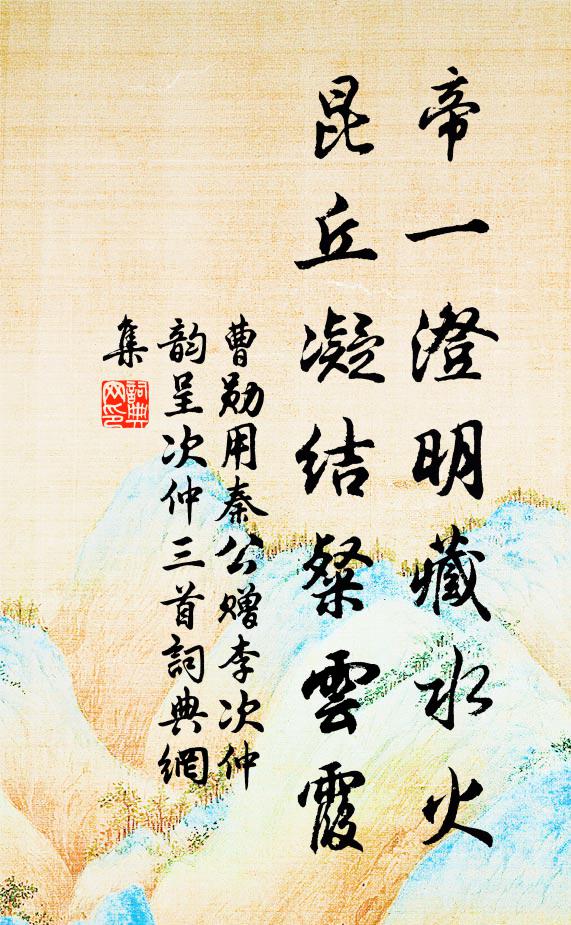 帝一澄明藏水火
昆丘凝結粲雲霞
曹勛用秦公贈李次仲
韵呈次仲三首詞典網
集
詞典
网印